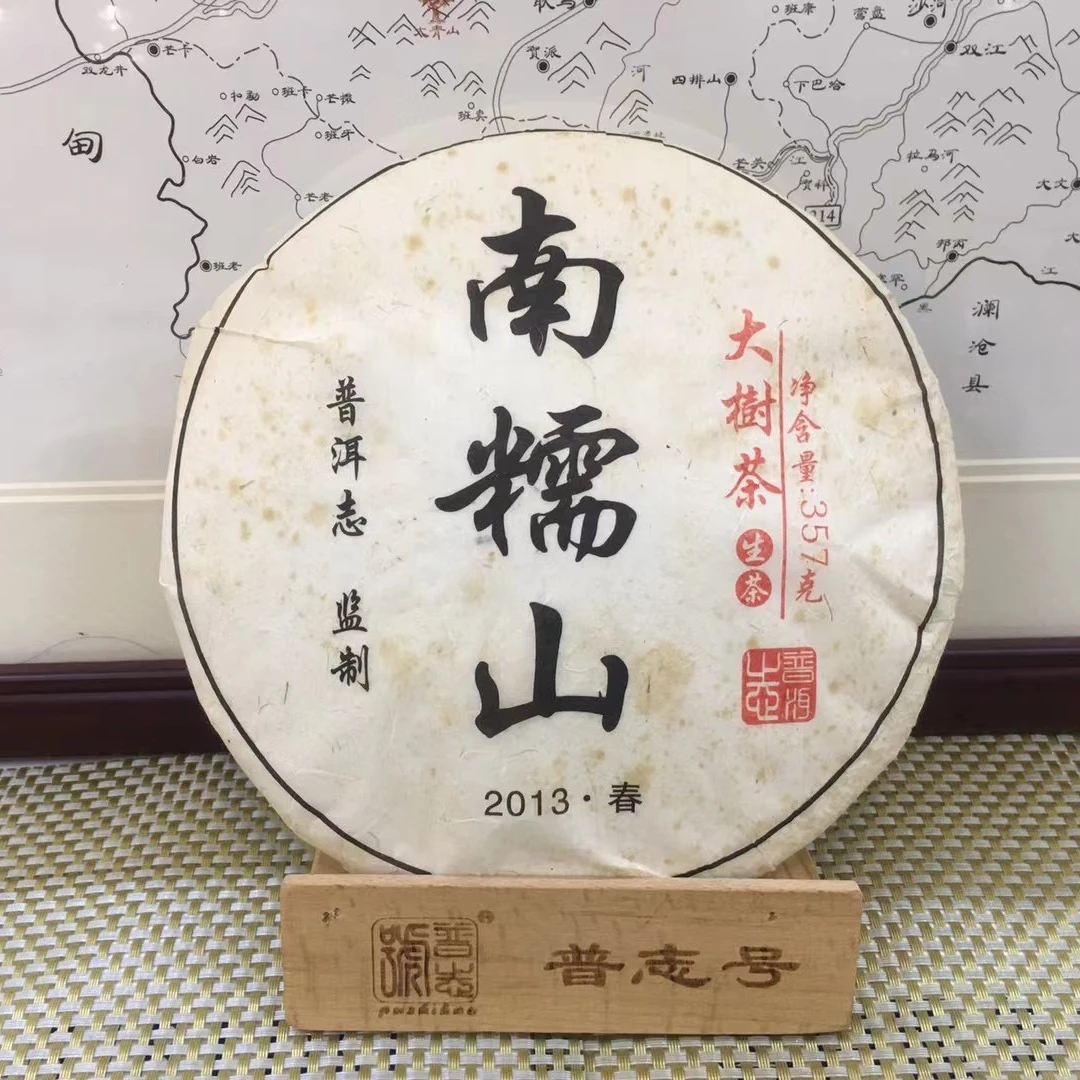 耿马
大青山
班康
营盘
沙河
双江
芒卡
双龙井
贺派
河
四排山
下巴哈
和勐
班卡
芒撒
班卖
班牙
甸
白岩
芒老
拉马河
大文
214
班老
邦丙
江
澜沧县
南糯山
普洱志 监制
大樹茶
生茶
净含量:357克
普洱志
2013·春
普志號
puzhihao
普志号